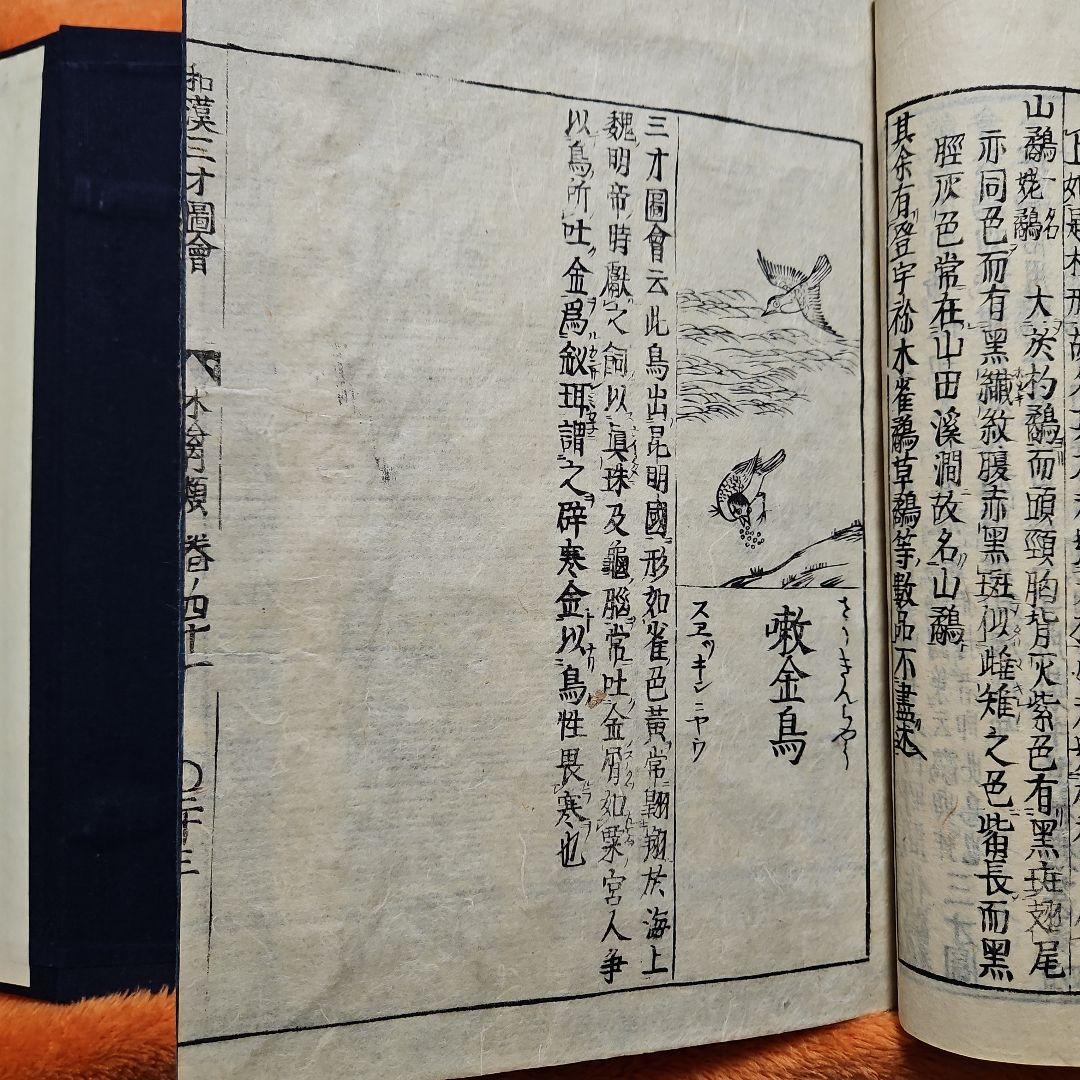 山鷸
一名
姥鷸
大於杓鷸而頭頸胸背灰紫色有黑斑翅尾
亦同色而有黑纖紋腹赤黑斑似雌雉之色觜長而黑
脛灰色常在山田溪澗故名山鷸
其余有登宇祢木雀鷸草鷸等數品不盡述
さゝきんちやう
嗽金鳥
スヱッキンニヤウ
三才圖會云此鳥出昆明國形如雀色黃常翺翔於海上
魏明帝時獻之飼以眞珠及龜腦常吐金屑如粟宮人爭
以鳥所吐金爲釵珥謂之辟寒金以鳥性畏寒也
和漢三才圖會
林禽類
卷ノ四十二
〇二十三